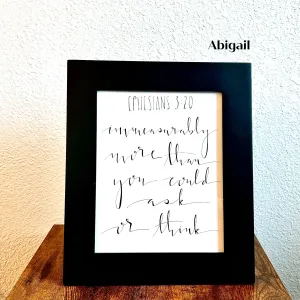 Abigail
EPHESIANS 3:20
immeasurably
more than
you could
ask
or think